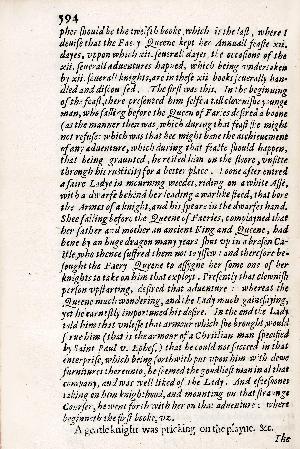 594
pher should be the twelfth booke, which is the last, where I
deuise that the Faery Queene kept her Annuall feaste xii.
dayes, vppon which xii. seuerall dayes, the occasions of the
xii. seuerall aduentures hapned, which being vndertaken
by xii. seuerall knights, are in these xii books seuerally han-
dled and discoursed. The first was this. In the beginning
of the feast, there presented him selfe a tall clownishe younge
man, who falling before the Queen of Faries desired a boone
(as the manner then was) which during that feast she might
not refuse: which was that hee might haue the atchieuement
of any aduenture, which during that feaste should happen,
that being graunted, he rested him on the floore, vnfitte
through his rusticity for a better place. Soone after entred
a faire Ladye in mourning weedes, riding on a white Asse,
with a dwarfe behind her leading a warlike steed, that bore
the Armes of a knight, and his speare in the dwarfes hand.
Shee falling before the Queene of Faeries, complayned that
her father and mother an ancient King and Queene, had
bene by an huge dragon many years shut vp in a brasen Ca-
stle, who thence suffred them not to yssew: and therefore be-
sought the Faery Queene to assygne her some one of her
knights to take on him that exployt. Presently that clownish
person vpstarting, desired that aduenture: whereat the
Queene much wondering, and the Lady much gainesaying,
yet he earnestly importuned his desire. In the end the Lady
told him that vnlesse that armour which she brought, would
serue him (that is the armour of a Christian man specified
by Saint Paul v. Ephes.) that he could not succeed in that
enterprise, which being forthwith put vpon him with dewe
furnitures thereunto, he seemed the goodliest man in al that
company, and was well liked of the Lady. And eftesoones
taking on him knighthood, and mounting on that straunge
Courser, he went forth with her on that aduenture: where
beginneth the first booke, vz.
A gentle knight was pricking on the playne. &c.
The